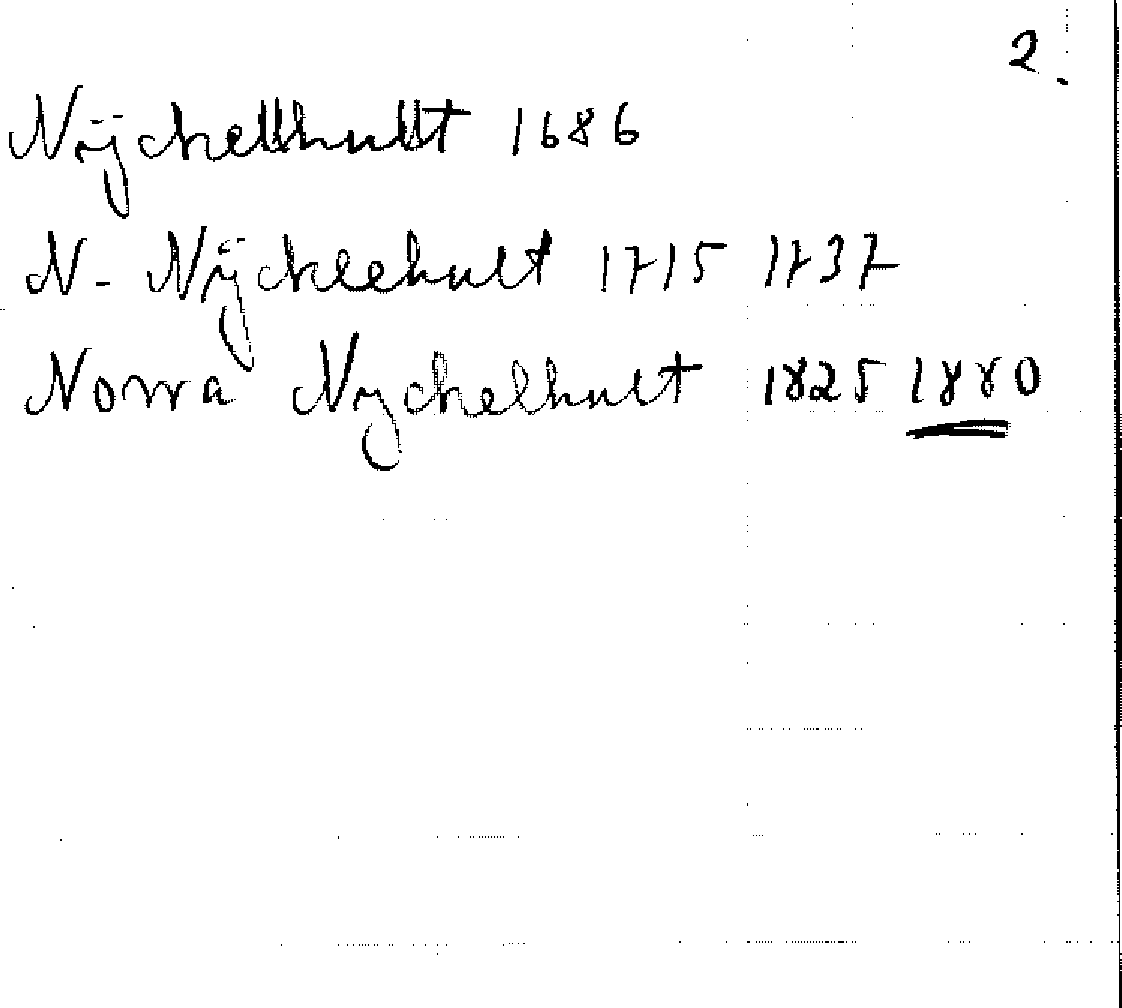 2.
Nÿckellhullt 1686
N. Nÿckleehult 1715 1737
Norra Nyckelhult 1825 1880